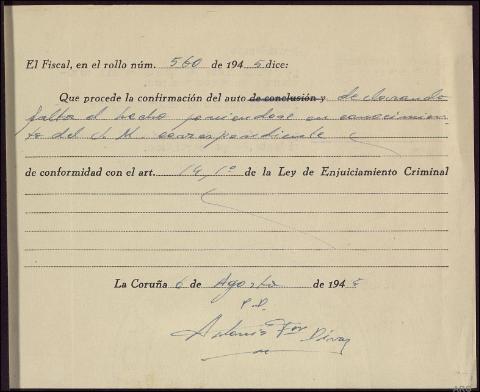 El Fiscal, en el rollo núm. 560 de 1945 dice:
Que procede la confirmación del auto de conclusión y declarando
falta el hecho poniendose en conocimien
to del J. M. correspondiente
de conformidad con el art. 14, 1º de la Ley de Enjuiciamiento Criminal
La Coruña 6 de Agosto de 1945
P. D.
Antonio